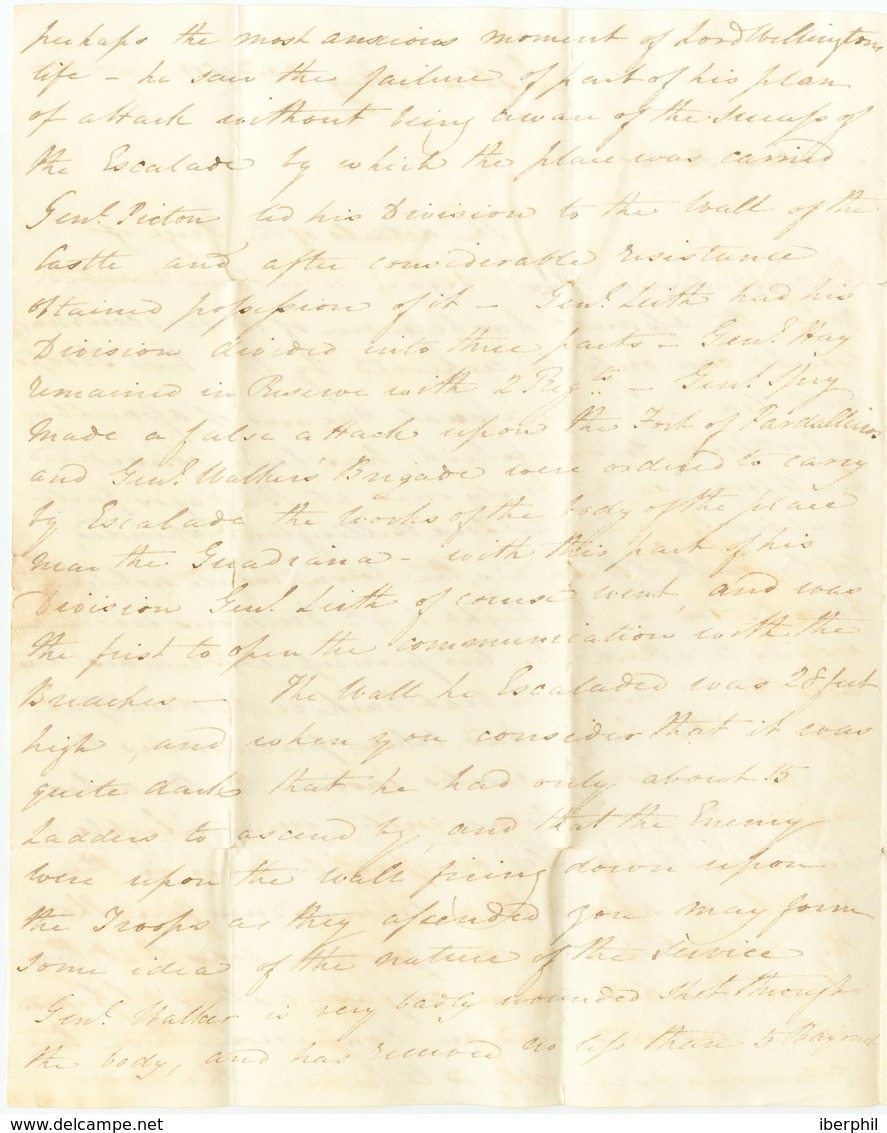 perhaps the most anxious moment of Lord Wellingtons
life – he saw the failure of part of his plan
of attack without being aware of the success of
the Escalade by which the place was carried
Genl. Picton led his Division to the Wall of the
Castle and after considerable resistance
obtained possession of it – Genl. Leith had his
Division divided into three parts – Genl. Hay
remained in Reserve with 2 Regts – Genl. Spry
made a false attack upon the Fort of Pardalleros
and Genl. Walker's Brigade were ordered to carry
by Escalade the works of the body of the place
near the Guadiana – with this part of his
Division Genl. Leith of course went, and was
the first to open the communication with the
Breaches – The Wall he Escaladed was 28 feet
high, and when you consider that it was
quite dark that he had only about 15
Ladders to ascend by, and that the Enemy
were upon the wall firing down upon
the Troops as they ascended you may form
some idea of the nature of the Service
Genl. Walker is very badly wounded shot through
the body, and has received no less than 5 Bayonet
www.delcampe.net
iberphil